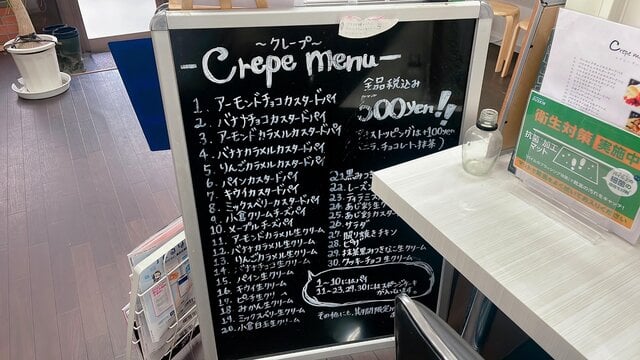 〜クレープ〜
Crepe menu
全品税込み
500yen!!
トッピングは+100yen
ニラ、チョコレート、抹茶)
1. アーモンドチョコカスタードパイ
2. バナナチョコカスタードパイ
3. アーモンドカラメルカスタードパイ
4. バナナカラメルカスタードパイ
5. りんごカラメルカスタードパイ
6. パインカスタードパイ
7. キウイカスタードパイ
8. ミックスベリーカスタードパイ
9. 小倉クリームチーズパイ
10. メープルチーズパイ
11. アーモンドカラメル生クリーム
12. バナナカラメル生クリーム
13. りんごカラメル生クリーム
14. バナナチョコ生クリーム
15. パイン生クリーム
16. キウイ生クリーム
17. ピーチ生クリーム
18. みかん生クリーム
19. ミックスベリー生クリーム
20. 小倉白玉生クリーム
21. 黒みつき
22. レーズン
23. ティラミス
24. あじ彩生ク
25. あじ彩カスタ
26. サラダ
27. 照り焼きチキン
28. ピザ
29. 抹茶黒みつきなこ生クリーム
30. クッキーチョコ生クリーム
1〜10にはパイ
11〜23,29,30にはスポンジケーキ
が入っています。
その他にも、期間限定
Crepe m
衛生対策 実施中
抗菌加工
マット